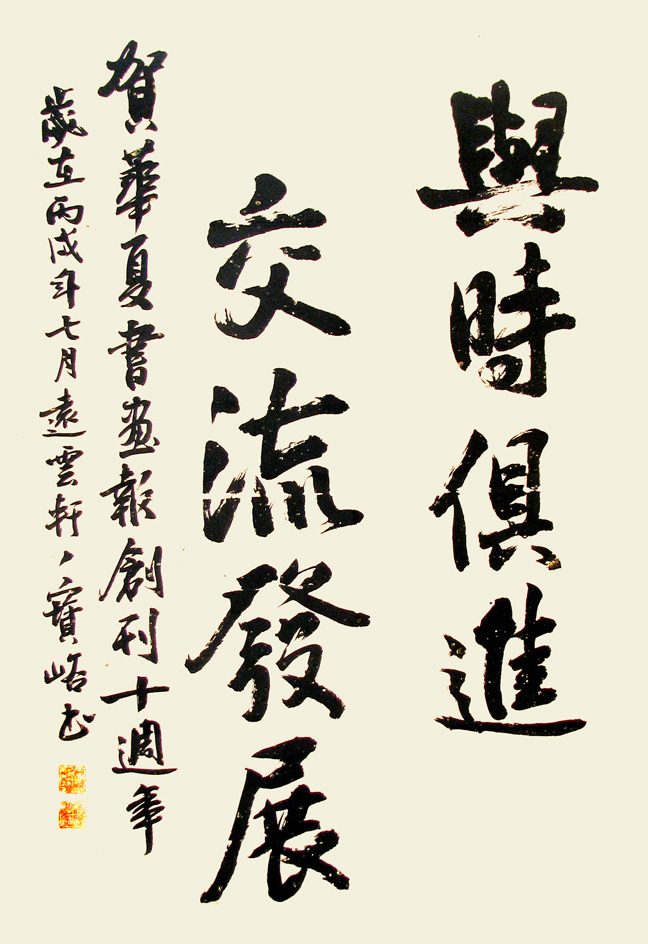 與時俱進
交流發展
賀華夏書画報創刊十週年
歲在丙戌年七月遠雲軒寶峪书